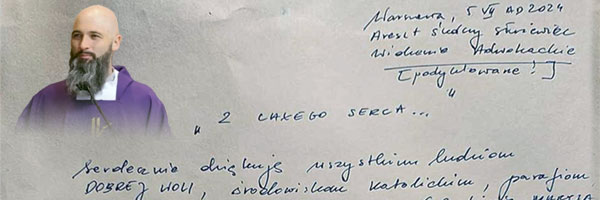 Warszawa, 5 VII AD 2024
Areszt Śledczy Służewiec
Widzenie Adwokackie
[podyktowane!]
"Z CAŁEGO SERCA..."
Serdecznie dziękuję wszystkim ludziom
DOBREJ WOLI, środowiskom katolickim, parafiom